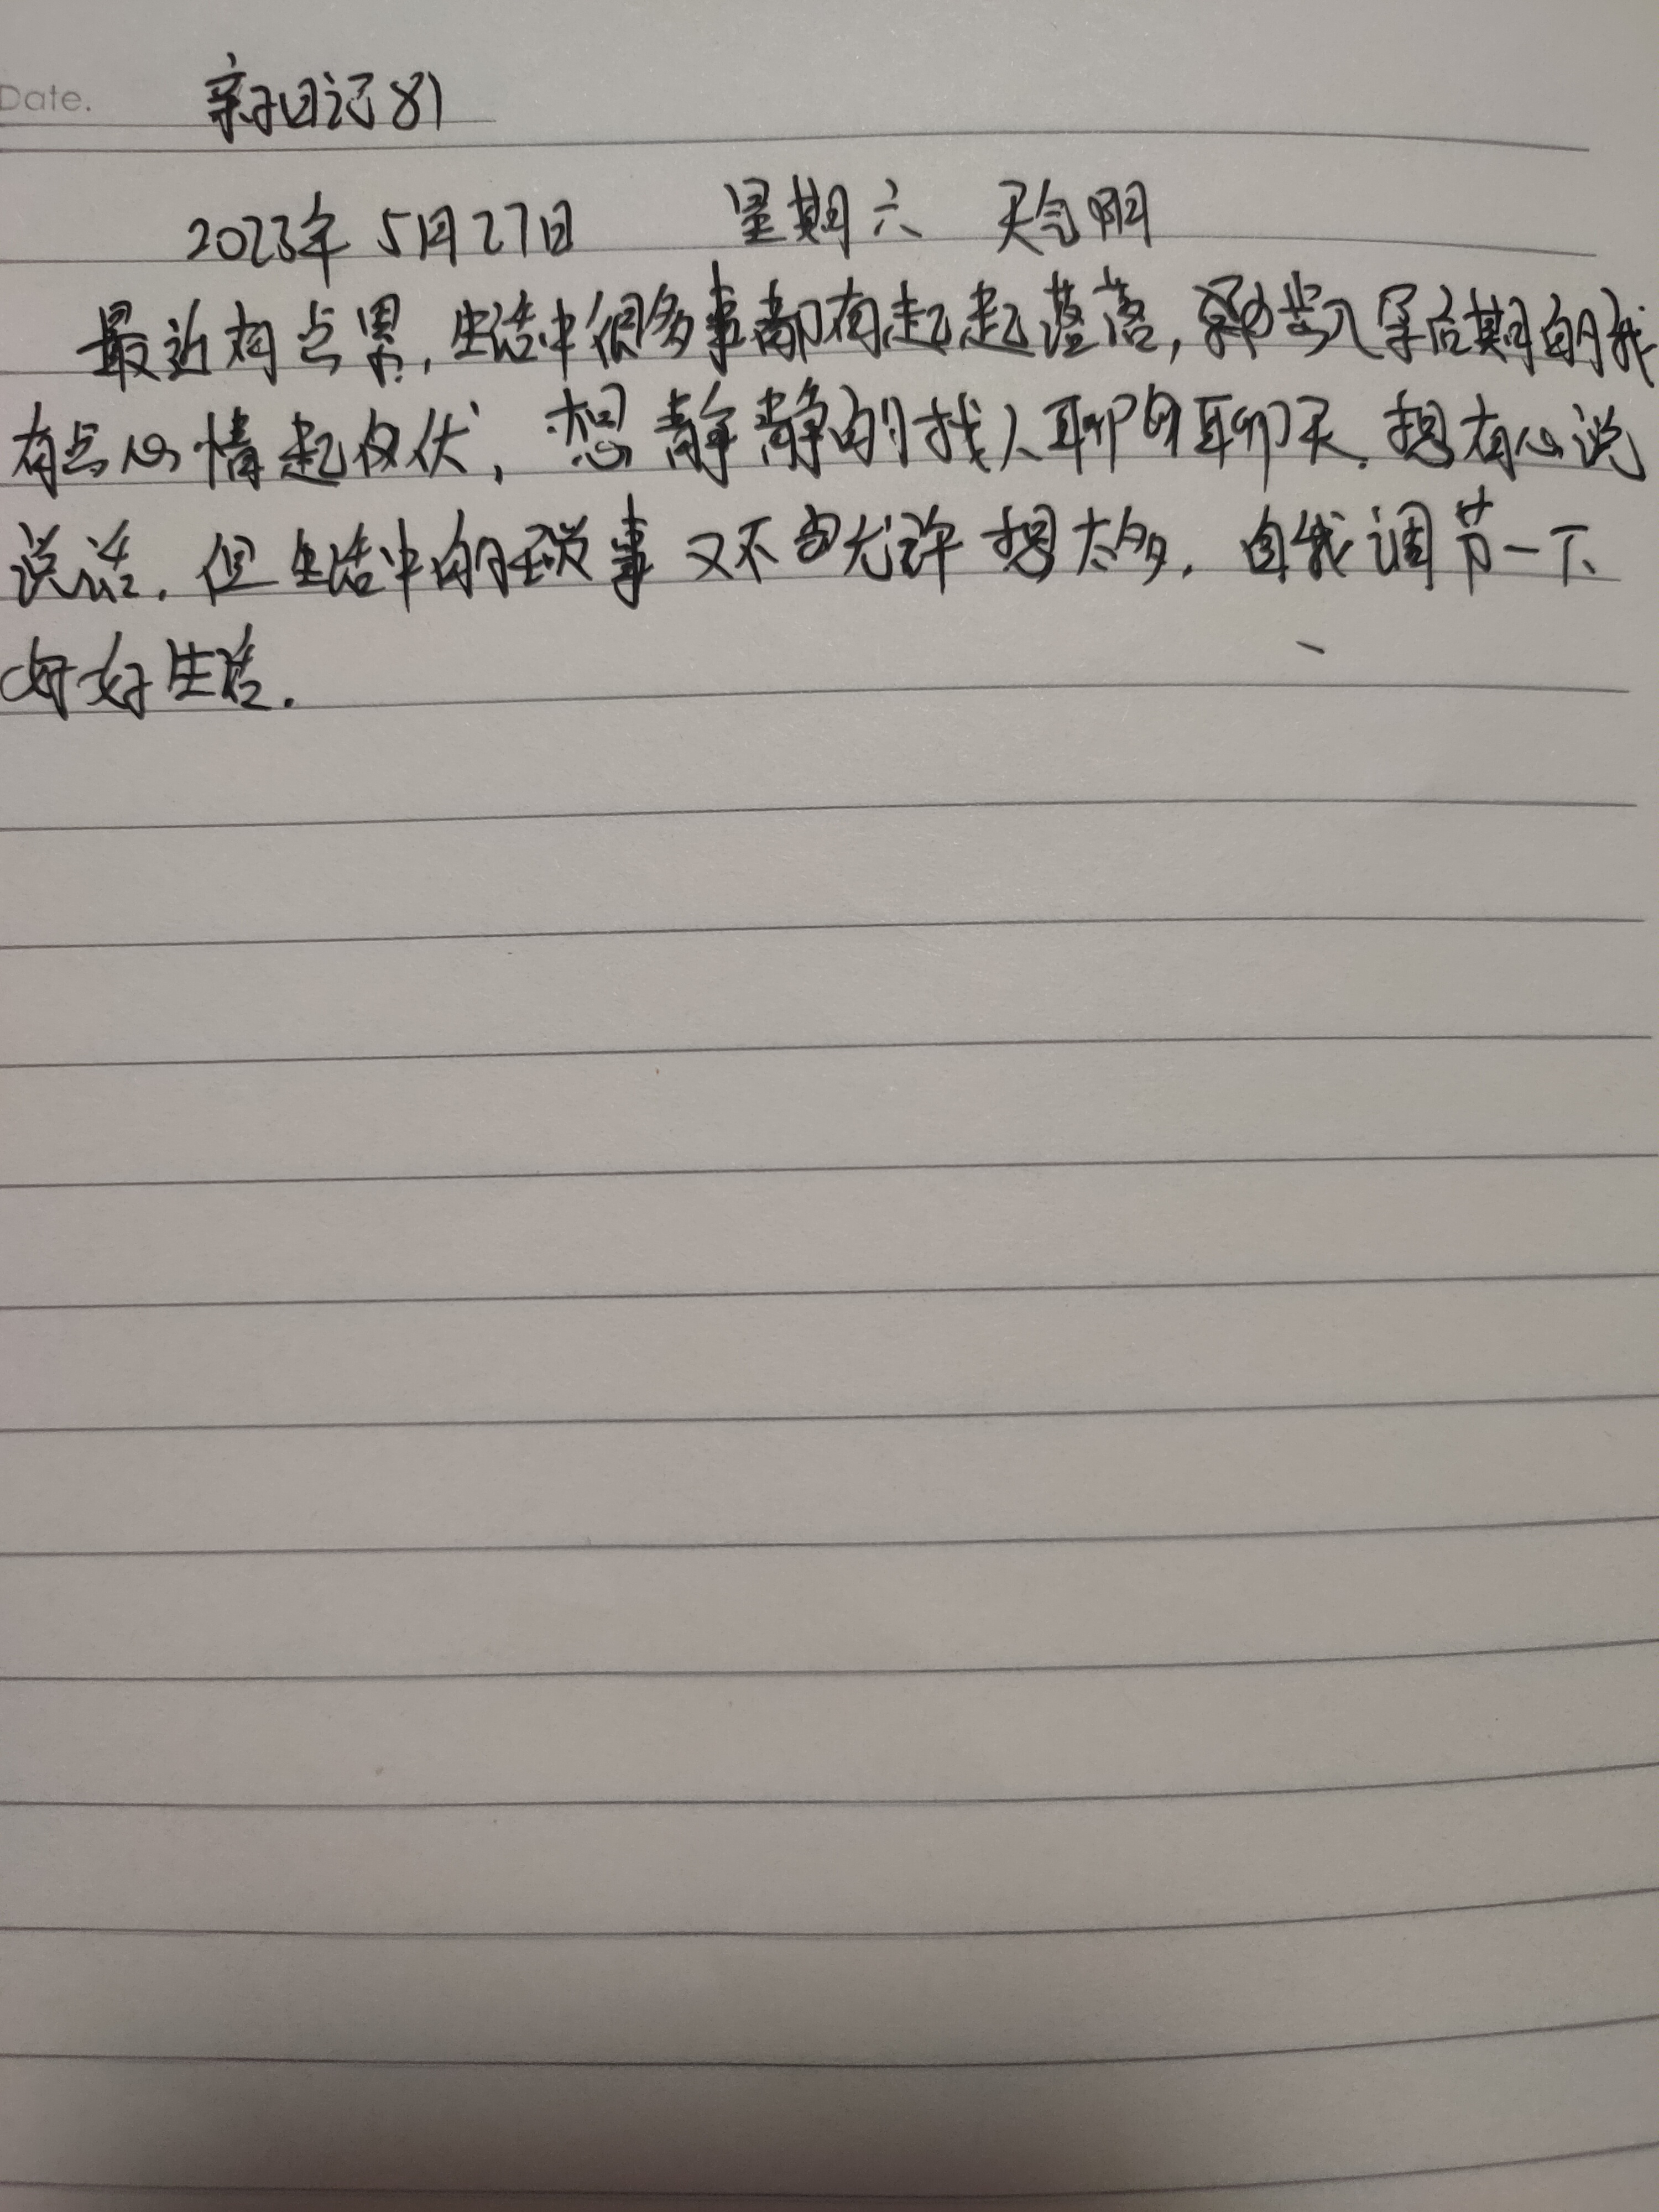 Date. 亲子日记 81
2023年 5月27日 星期六 天气阴
最近有点累,生活中很多事都有起起落落,后期的我
有点心情起伏,想静静的找人聊聊天.想有心说
说话.但生活中的琐事又不允许想太多.自我调节一下
好好生活.